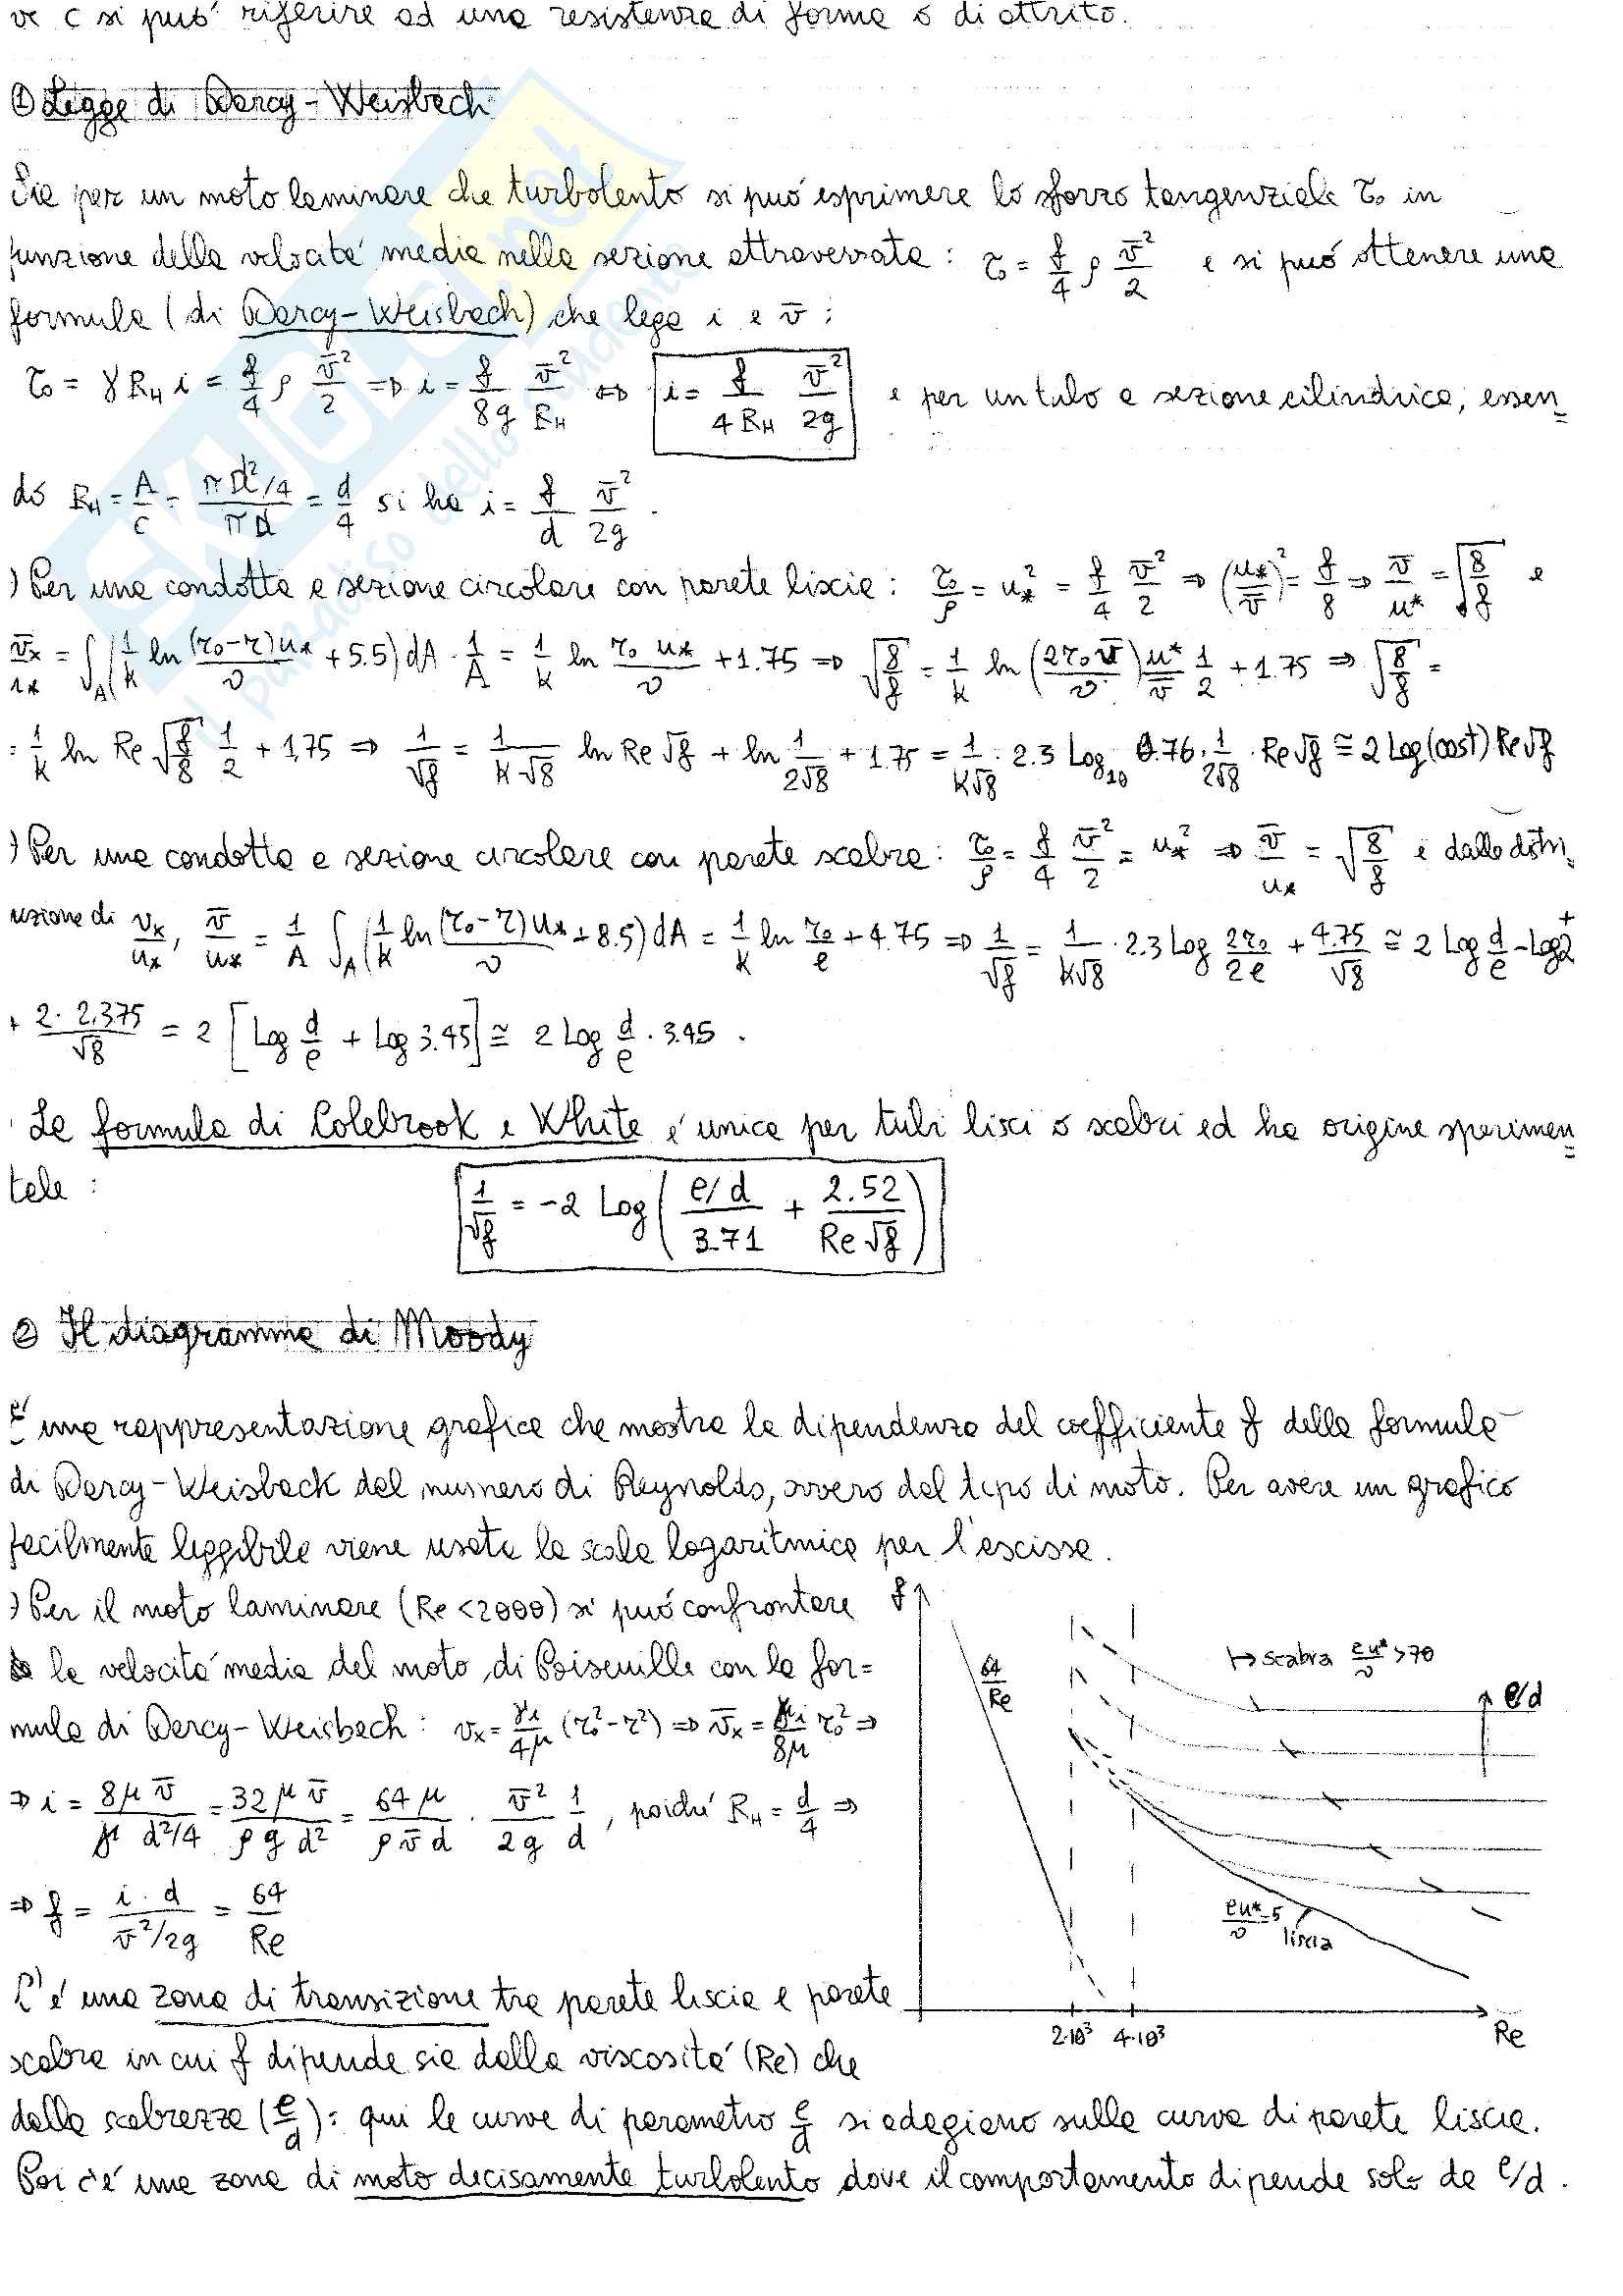 ve C si può riferire ad una resistenza di forma o di attrito.
① Legge di Darcy-Weisbach
Sia per un moto laminare che turbolento si può esprimere lo sforzo tangenziale τ₀ in
funzione della velocità media nella sezione attraversata: τ₀ = f/4 ρ v̄²/2 e si può ottenere una
formula (di Darcy-Weisbach) che lega i e v̄:
τ₀ = γ R_H i = f/4 ρ v̄²/2 ⇒ i = f/8g v̄²/R_H ⇔ i = f/4R_H v̄²/2g e per un tubo a sezione cilindrica, essen=
do R_H = A/C = (πD²/4)/(πD) = d/4 si ha i = f/d v̄²/2g.
) Per una condotta a sezione circolare con parete liscia: τ₀/ρ = u*² = f/4 v̄²/2 ⇒ (u*/v̄)² = f/8 ⇒ v̄/u* = √(8/f) e
v̄x/u* = ∫_A (1/k ln (r₀-r)u*/ν + 5.5) dA · 1/A = 1/k ln r₀ u*/ν + 1.75 ⇒ √(8/f) = 1/k ln (2r₀v̄/ν) u*/v̄ 1/2 + 1.75 ⇒ √(8/f) =
= 1/k ln Re √(f/8) 1/2 + 1.75 ⇒ 1/√f = 1/(k√8) ln Re√f + ln 1/(2√8) + 1.75 = 1/(k√8) · 2.3 Log₁₀ 0.76 · 1/(2√8) · Re√f ≅ 2 Log (cost) Re√f
) Per una condotta a sezione circolare con parete scabra: τ₀/ρ = f/4 v̄²/2 = u*² ⇒ v̄/u* = √(8/f) e dalla distri=
buzione di vx/u*, v̄/u* = 1/A ∫_A (1/k ln (r₀-r)u*/ν + 8.5) dA = 1/k ln r₀/e + 4.75 ⇒ 1/√f = 1/(k√8) · 2.3 Log 2r₀/2e + 4.75/√8 ≅ 2 Log d/e - Log2 +
+ 2·2.375/√8 = 2 [Log d/e + Log 3.45] ≅ 2 Log d/e · 3.45.
La formula di Colebrook e White è unica per tubi lisci o scabri ed ha origine sperimen=
tale:
1/√f = -2 Log ( (e/d)/3.71 + 2.52/(Re√f) )
② Il diagramma di Moody
È una rappresentazione grafica che mostra la dipendenza del coefficiente f della formula
di Darcy-Weisback dal numero di Reynolds, ovvero dal tipo di moto. Per avere un grafico
facilmente leggibile viene usata la scala logaritmica per l'ascissa.
) Per il moto laminare (Re<2000) si può confrontare
la velocità media del moto di Poiseuille con la for=
mula di Darcy-Weisbach: vx = γi/4μ (r₀²-r²) ⇒ v̄x = γi/8μ r₀² ⇒
⇒ i = 8μv̄/(γ d²/4) = 32μv̄/(ρg d²) = 64μ/(ρv̄d) · v̄²/2g 1/d, poiché R_H = d/4 ⇒
⇒ f = i·d/(v̄²/2g) = 64/Re
C'è una zona di transizione tra parete liscia e parete
scabra in cui f dipende sia dalla viscosità (Re) che
dalla scabrezza (e/d): qui le curve di parametro e/d si adagiano sulla curva di parete liscia.
Poi c'è una zona di moto decisamente turbolento dove il comportamento dipende solo da e/d.
f
64/Re
↦ scabra eu*/ν >70
e/d
eu*/ν =5
liscia
2·10³ 4·10³
Re